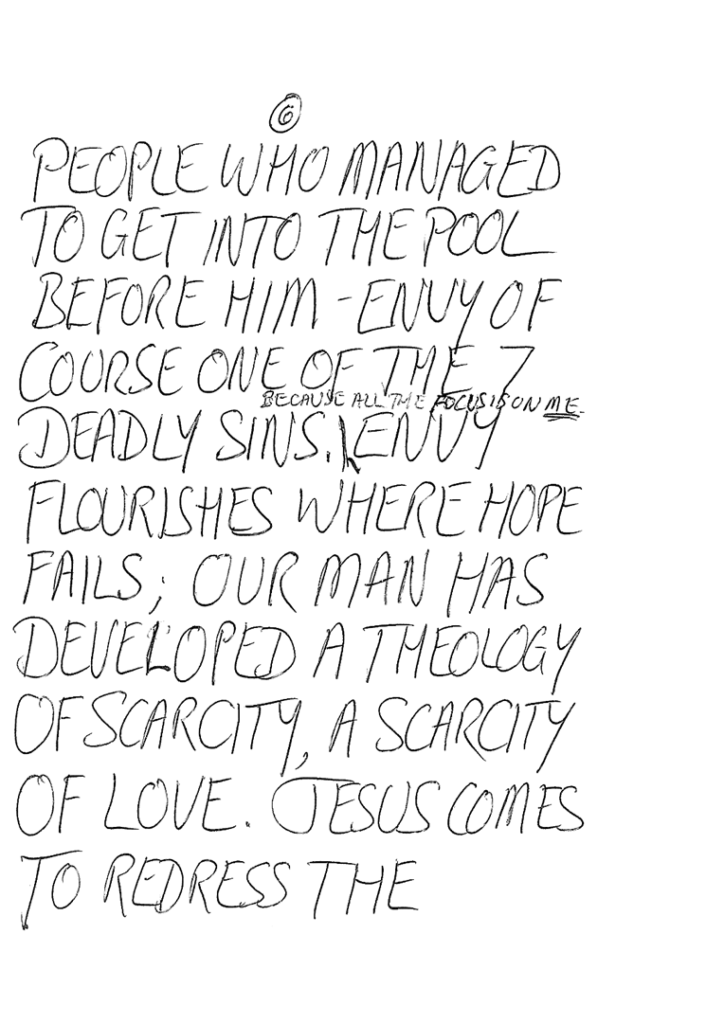 6
PEOPLE WHO MANAGED
TO GET INTO THE POOL
BEFORE HIM - ENVY OF
COURSE ONE OF THE 7
BECAUSE ALL THE FOCUS IS ON ME.
DEADLY SINS. ENVY
FLOURISHES WHERE HOPE
FAILS; OUR MAN HAS
DEVELOPED A THEOLOGY
OF SCARCITY, A SCARCITY
OF LOVE. JESUS COMES
TO REDRESS THE